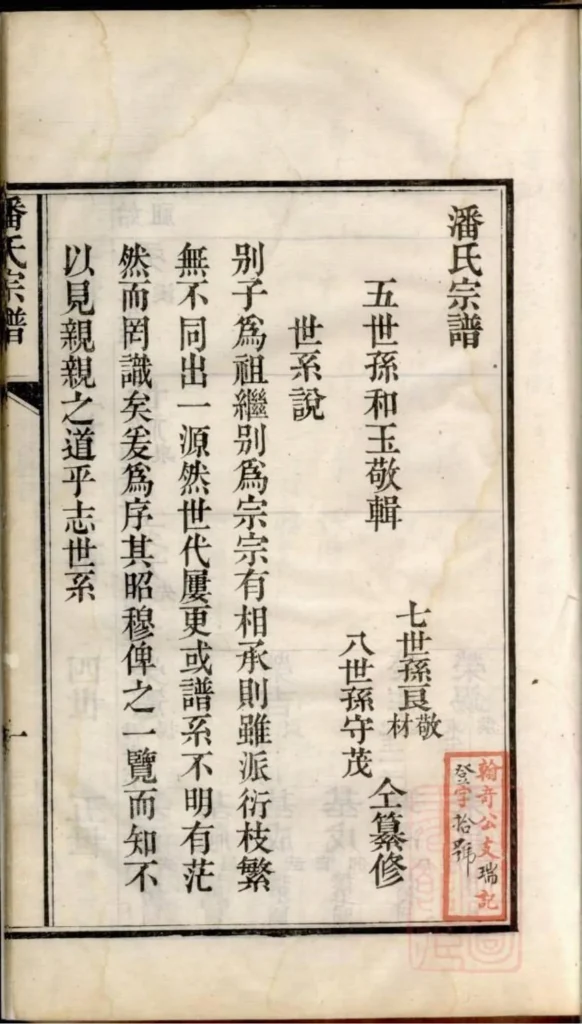 潘氏宗譜
七世孫良敬材
五世孫和玉敬輯
八世孫守茂
仝纂修
世系說
別子爲祖繼別爲宗宗有相承則雖派衍枝繁
無不同出一源然世代屢更或譜系不明有茫
然而罔識矣爰爲序其昭穆俾之一覽而知不
以見親親之道乎志世系
潘氏宗譜
一
翰奇公支瑞記
登字拾號